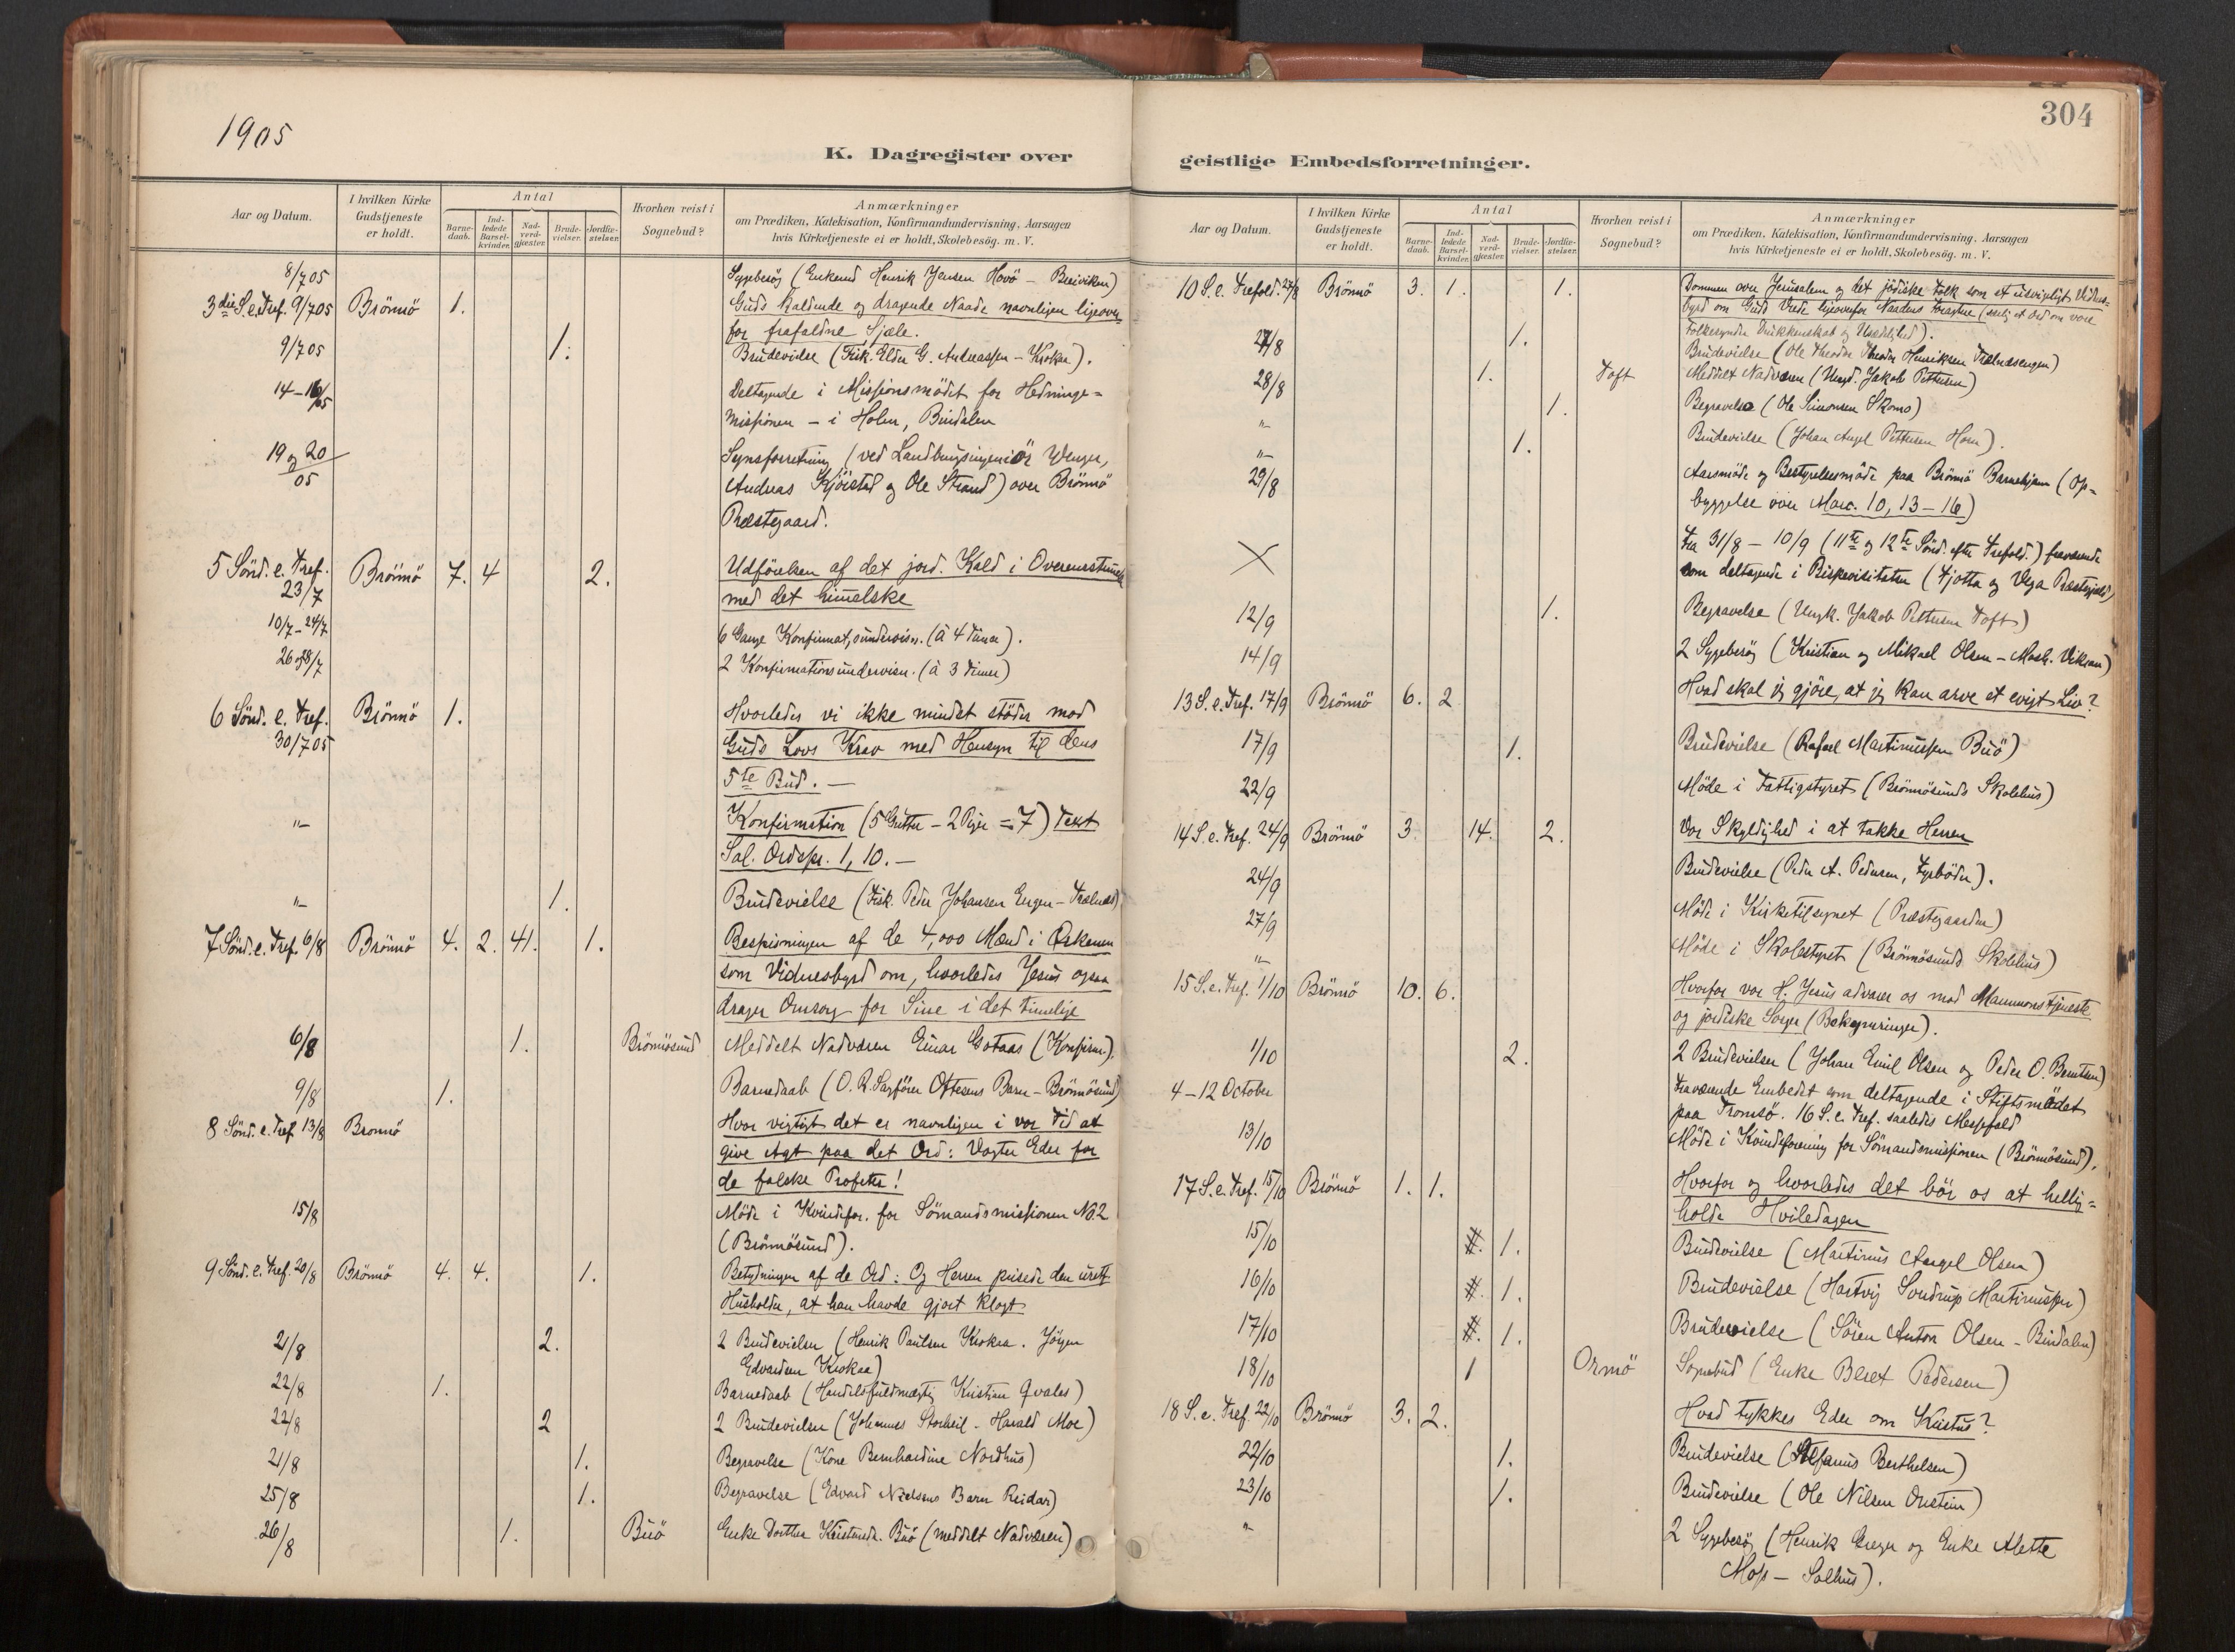 1905
K. Dagregister over
Aar og Datum.
I hvilken Kirke Gudstjeneste er holdt.
Antal
Barnedaab.
Indledede Barselkvinder.
Nadverdgjæster.
Brudevielser.
Jordfæstelser.
Hvorhen reist i Sognebud?
Anmærkninger
om Prædiken, Katekisation, Konfirmandundervisning, Aarsagen
hvis Kirketjeneste ei er holdt, Skolebesög. m. V.
8/7 05 Sygebesög (Enkemd Henrik Jensen Hovö – Breiviken)
3die S. e. Tref. 9/7 05 Brönnö 1. Guds kaldende og dragende Naade navnligen ligeover
for frafaldne Sjæle.
9/7 05 1. Brudevielse (Fisk. Elder G. Andreassen – Krokaa).
14–16/05 Deltagende i Missionsmödet for Hedninge=
missionen – i Holm, Bindalen
19 og 20/05 Synsforretning (ved Landbrugsingeniör Wenger,
Andreas Kjöistad og Ole Strand) over Brönnö
Præstegaard.
5 Sönd. e. Tref. 23/7 Brönnö 7. 4 2. Udförelsen af det jord. Kald i Overensstemm
med det himmelske
10/7–24/7 6 Gange Konfirmat,sundervisn. (à 4 Timer).
26 og 28/7 2 Konfirmationsundervisn. (à 3 Timer)
6 Sönd. e. Tref. 30/7 05 Brönnö 1. Hvorledes vi ikke mindst støder mod
Guds Lovs Krav med Hensyn til dens
5te Bud. –
"– Konfirmation (5 Gutter – 2 Piger = 7) Text
Sal. Ordspr. 1, 10. –
"– 1. Brudevielse (Fisk. Peder Johansen Engen – Trælnæs)
7 Sönd. e. Tref. 6/8 Brönnö 4. 2. 41. 1. Bespisningen af de 4,000 Mænd i Örkenen
som Vidnesbyrd om, hvorledes Jesus ogsaa
drager Omsorg for Sine i det timelige
6/8 1. Brönnösund Meddelt Nadveren Einar Gotaas (Konfirm).
9/8 1. Barnedaab (O. R. Sagfören Ottesens Barn – Brönnösund)
8 Sönd. e. Tref 13/8 Bronnö Hvor vigtigt det er navnligen i vor Tid at
give Agt paa det Ord: Vogter Eder for
de falske Profeter!
15/8 Möde i Kvindefor. for Sömandsmissionen No. 2
(Brönnösund).
9 Sönd. e. Tref. 20/8 Brönnö 4. 4. 1. Betydningen af de Ord: Og Herren prisede den urett.
Husholder, at han havde gjort klogt
21/8 2. 2 Brudevielser (Henrik Paulsen Krokaa. Jörgen
Edvardsen Krokaa)
22/8 1. Barnedaab (Handelsfuldmægtig Kristian Qvales)
22/8 2 2 Brudevielser (Johannes Storheil – Harald Moe)
21/8 1. Begravelse (Kone Bernhardine Nordhus)
25/8 1. Begravelse (Edvard Nielsens Barn Reidar)
26/8 1. Buö Enke Dorthea Buö (meddelt Nadveren)
304
geistlige Embedsforretninger.
Aar og Datum.
I hvilken Kirke Gudstjeneste er holdt.
Antal
Barnedaab.
Indledede Barselkvinder.
Nadverdgjæster.
Brudevielser.
Jordfæstelser.
Hvorhen reist i Sognebud?
Anmærkninger
om Prædiken, Katekisation, Konfirmandundervisning, Aarsagen
hvis Kirketjeneste ei er holdt, Skolebesög. m. V.
10 S. e. Trefold. 27/8 Brönnö 3. 1. 1. Dommen over Jerusalem og det jödiske Folk som et usvigeligt Vidnes=
byrd om Guds Vrede ligeoverfor Naadens Foragtere (særlig et Ord om vore
Folkesynder Drukkenskab og Usædelighed).
27/8 1. Brudevielse (Ole Theodor Henriksen Trælnæsengen)
28/8 1. Toft Meddelt Nadveren (Ungd. Jakob Pettersen)
"– 1. Begravelse (Ole Simonsen Skomo)
"– 1. Brudevielse (Johan Angel Pettersen Horn).
29/8 Aarsmöde og Bestyrelsesmöde paa Brönnö Barnehjem (Op=
byggelse over Marc. 10, 13–16)
Fra 31/8 – 10/9 (11te og 12te Sönd. efter Trefold.) fraværende
som deltagende i Bispevisitatsen (Tjotta og Vega Præstegjeld)
12/9 1. Begravelse (Ungk. Jakob Pettersen Toft)
14/9 2 Sygebesög (Kristian og Mikael Olsen – Mosh. Viksaas)
13 S. e. Tref. 17/9 Brönnö 6. 2 Hvad skal jeg gjöre, at jeg kan arve et evigt Liv?
17/9 1. Brudevielse (Rafael Martinussen Buö)
22/9 Möde i Fattigstyret (Brönnösunds Skolehus)
14 S. e. Tref. 24/9 Brönnö 3. 14. 2. Vor Skyldighed i at takke Herren
24/9 Brudevielse (Peder A. Pedersen, Fyrböder).
27/9 Möde i Kirketilsynet (Præstegaarden)
"– Möde i Skolestyret (Brönnösunds Skolehus)
15 S. e. Tref. 1/10 Brönnö 10. 6. Hvorfor vor H. Jesus advarer os mod Mammonstjeneste
og jordiske Sorger (Bekymringer).
1/10 2. 2 Brudevielser (Johan Emil Olsen og Peder O. Berntsen)
4–12 October Fraværende Embedet som deltagende i Stiftsmödet
paa Tromsö. 16 S. e. Tref. saaledes Messefald
13/10 Möde i Kvindeforening for Sömandsmissionen (Brönnösund).
17 S. e. Tref. 15/10 Brönnö 1. 1. Hvorfor og hvorledes det bör os at hellig=
holde Hviledagen
15/10 1. Brudevielse (Martinus Angel Olsen)
16/10 1. Brudevielse (Hartvig Sondrup Martinussen)
17/10 1. Brudevielse (Sören Anton Olsen – Bindalen)
18/10 1 Ormö Sognebud (Enke Beret Pedersen)
18 S. e. Tref 22/10 Brönnö 3. 2. Hvad tykkes Eder om Kristus?
22/10 1. Brudevielse (Stefanus Berthelsen)
23/10 1. Brudevielse (Ole Nilsen Onstein)
"– 2 Sygebesög (Henrik Greger og Enke Alette
Moss – Salhus).